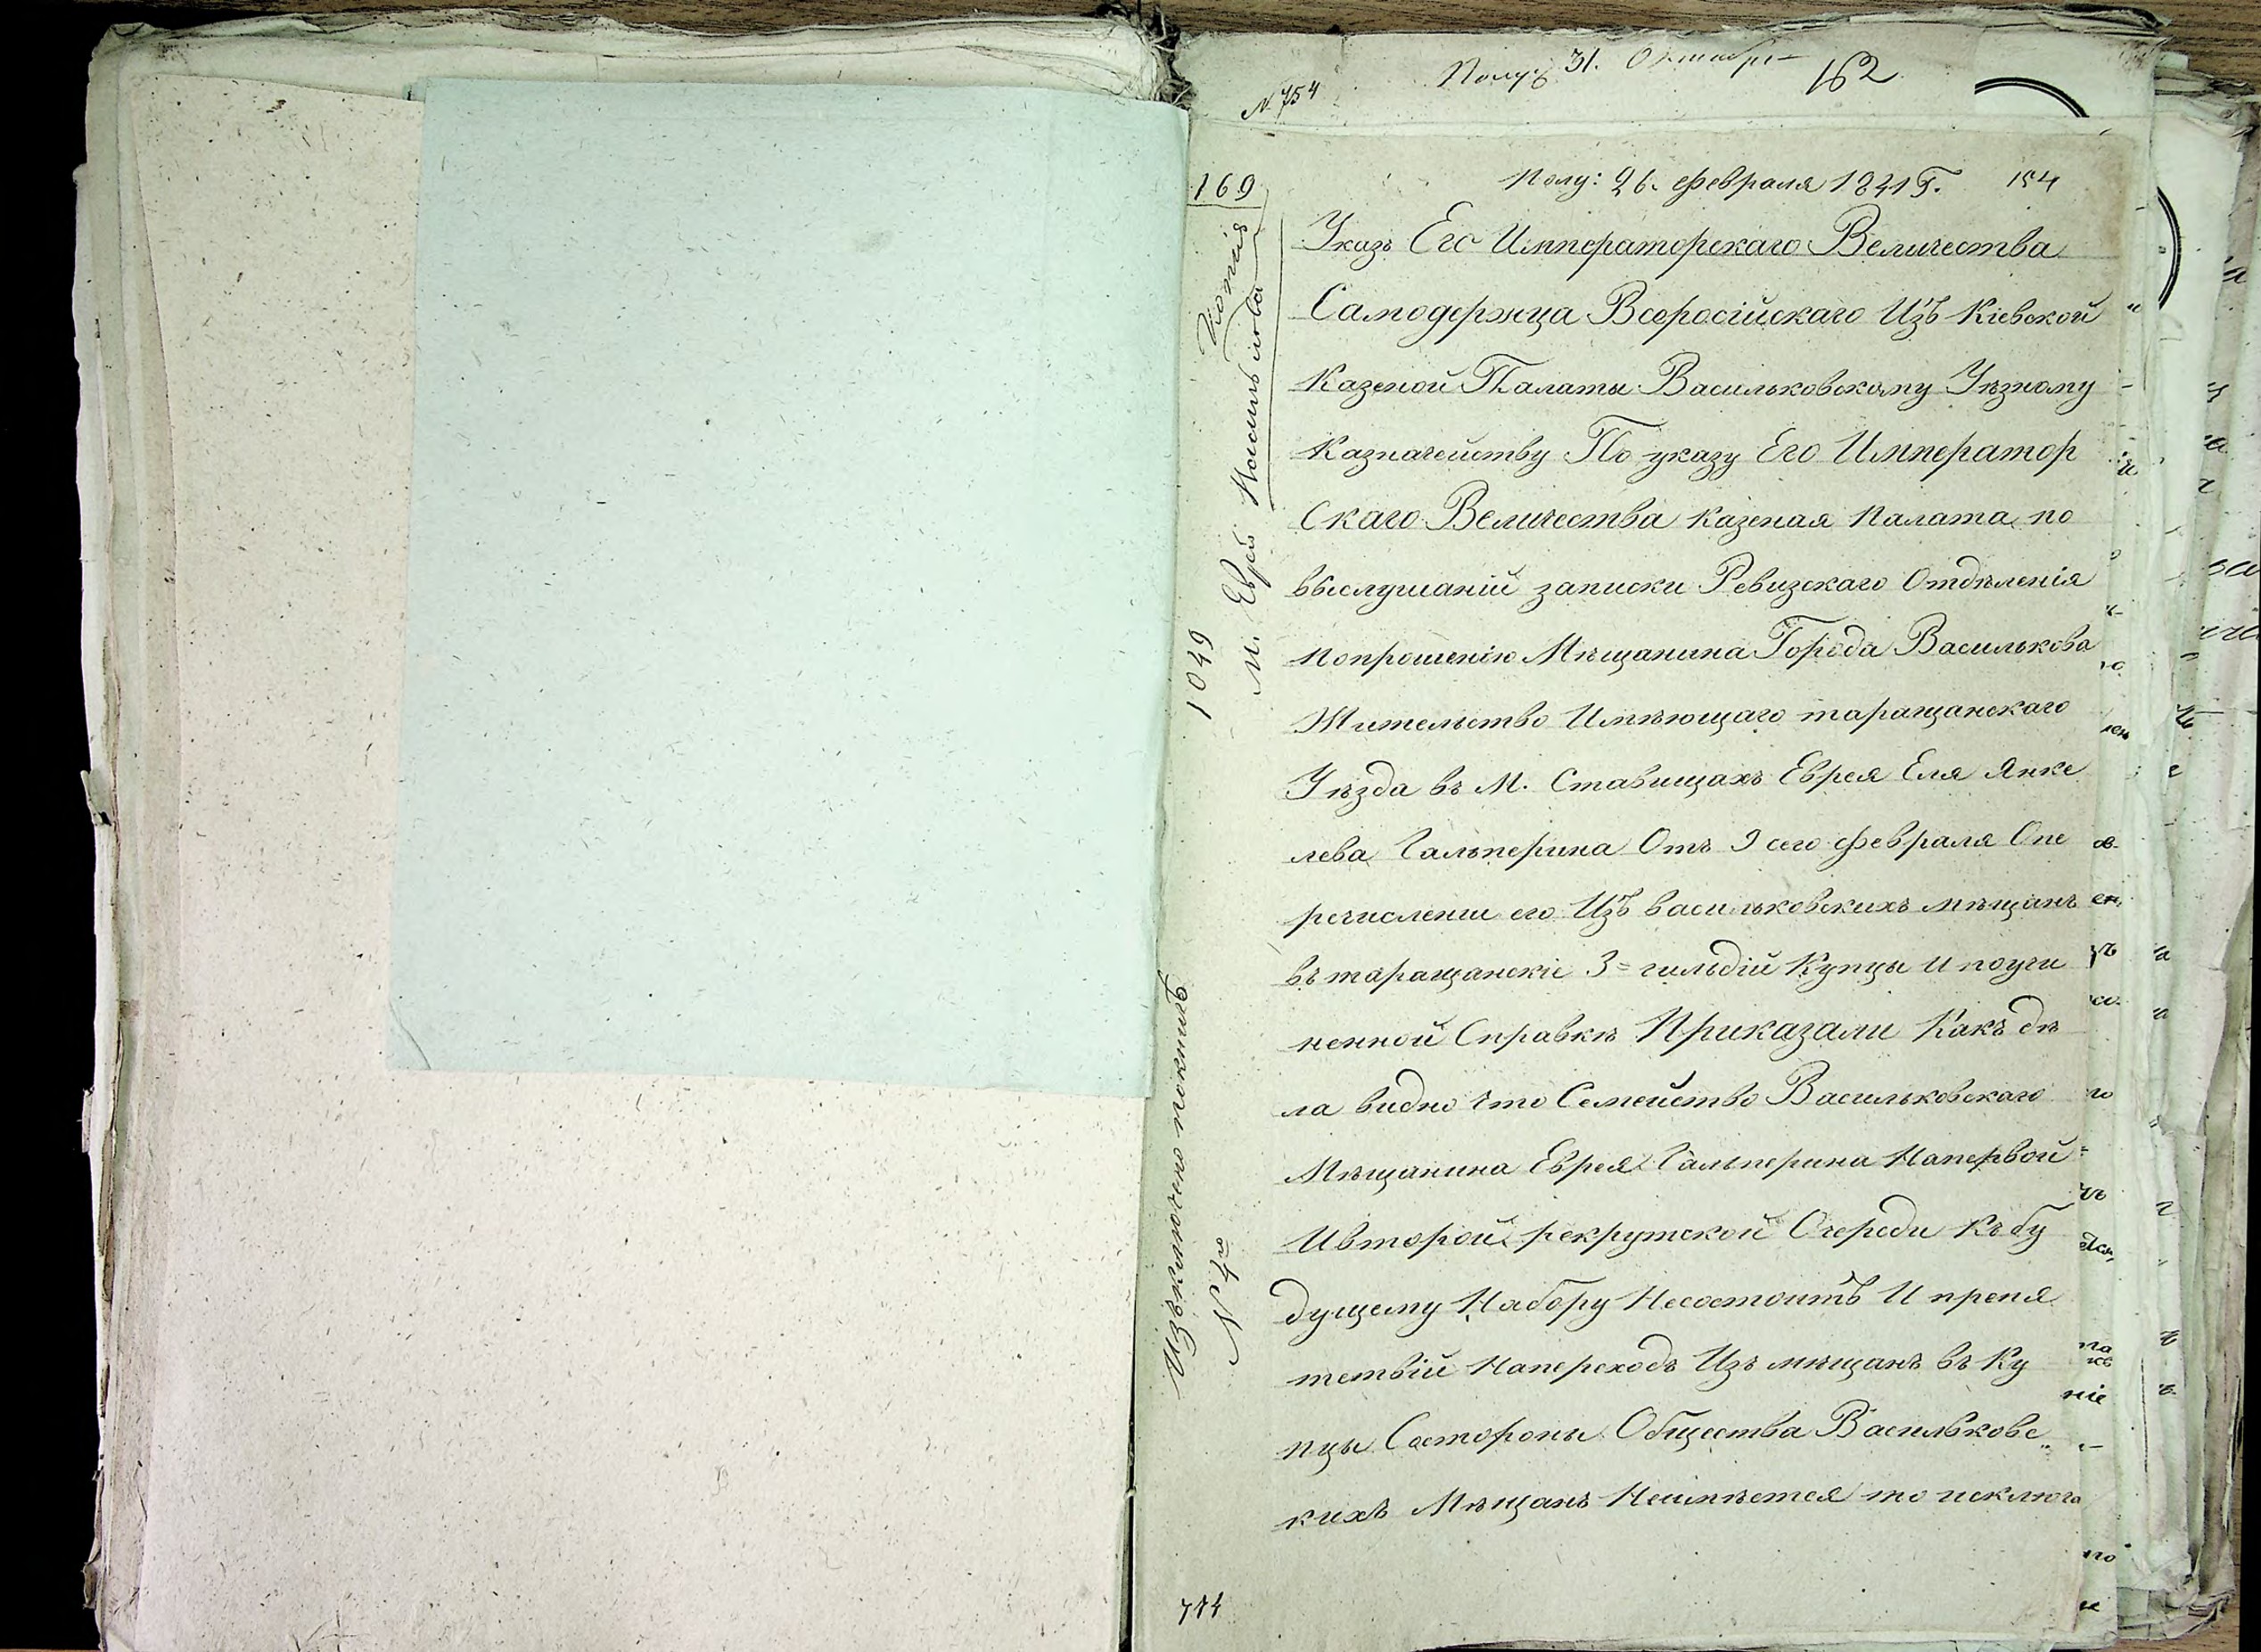 Получ 31. Октября
162
N. 754
169
Полу: 26. февраля 1841 Г. 154
Указъ Его Императорскаго Величества
Самодержца Всеросійскаго Изъ Кіевской
Казеной Палаты Васильковскому Уѣзному
Казначейству По указу Его Император
Скаго Величества Казеная Палата по
выслушаніи записки Ревизскаго Отдѣленія
Попрошенію Мѣщанина Города Василькова
Жительство Имѣющаго таращанскаго
Уѣзда въ М. Ставищахъ Еврея Еля Янке
лева Гальперина Отъ 9 сего февраля Опе
речисленіи его Изъ васильковскихъ мѣщанъ
въ таращанскіе 3= гильдіи Купцы и поучи
ненной Справкѣ Приказали Какъ дѣ
ла видно что Семейство Васильковскаго
Мѣщанина Еврея Гальперина Напервой
Ивторой рекрутской Очереди Къ бу
дущему Набору Несостоитъ И препя
тствій Напереходъ Изъ мѣщанъ въ Ку
пцы Состороны Общества Васильковс
кихъ Мѣщанъ Неимѣется то исключа
Копія
М. Евреи
1049
N 4го
774